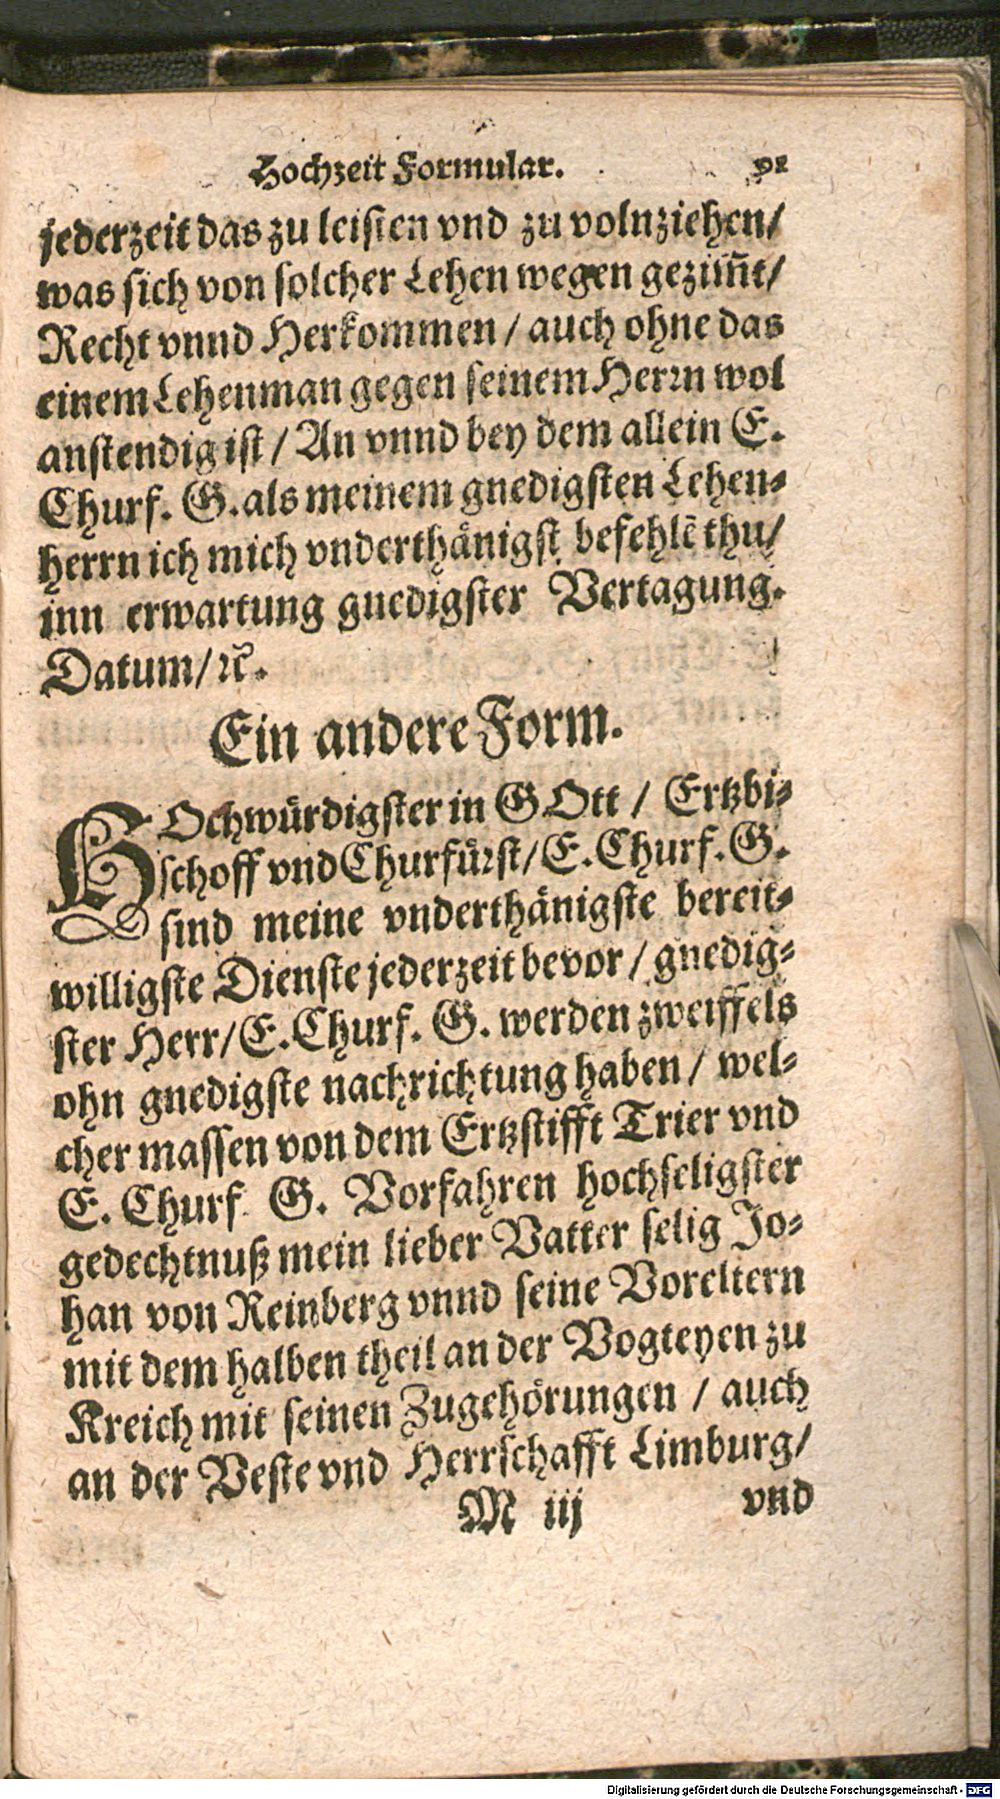 Hochzeit Formular. 91
jederzeit das zu leisten vnd zu volnziehen/
was sich von solcher Lehen wegen gezim̃t/
Recht vnnd Herkommen / auch ohne das
einem Lehenman gegen seinem Herrn wol
anstendig ist / An vnnd bey dem allein E.
Churf. G. als meinem gnedigsten Lehen-
herrn ich mich vnderthånigst befehlē thu/
inn erwartung gnedigster Vertagung.
Datum/ ꝛc̃.
Ein andere Form.
HOchwürdigster in GOtt / Ertzbi-
schoff vnd Churfürst/ E. Churf. G.
sind meine vnderthånigste bereit-
willigste Dienste jederzeit bevor / gnedig-
ster Herr/ E. Churf. G. werden zweiffels
ohn gnedigste nachrichtung haben / wel-
cher massen von dem Ertzstifft Trier vnd
E. Churf. G. Vorfahren hochseligster
gedechtnuß mein lieber Vatter selig Jo-
han von Reinberg vnnd seine Voreltern
mit dem halben theil an der Vogteyen zu
Kreich mit seinen Zugehörungen / auch
an der Veste vnd Herrschafft Limburg/
M iij vnd
Digitalisierung gefördert durch die Deutsche Forschungsgemeinschaft - DFG